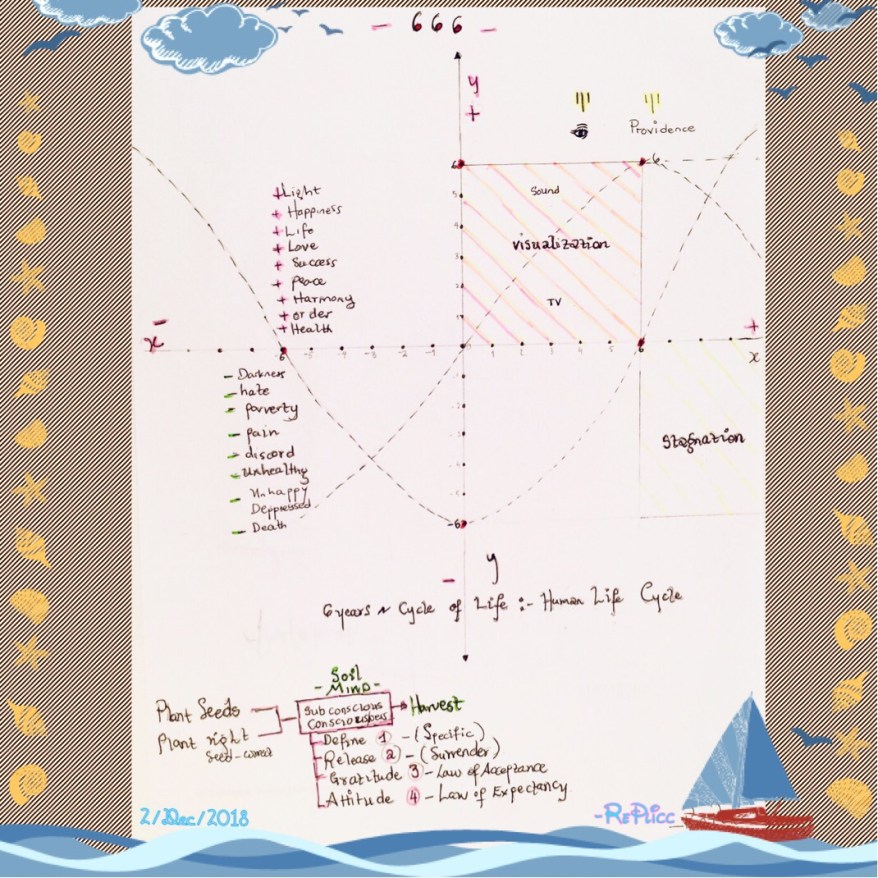 - 666 -
y
+
Providence
6
6
Sound
visualization
TV
5
4
3
2
1
+Light
+ Happiness
+ Life
+ Love
+ Success
+ peace
+ Harmony
+ or der
+ Health
- x
6
-5
-3
-2
-1
0
1
2
3
4
5
6
+
x
- Darkness
- hate
- poverty
- pain
- discord
- unhealthy
- Unhappy
Deppressed
- Death
Stagnation
-6
- y
6years ~ Cycle of Life :- Human Life Cycle
Soil
- MIND -
Plant Seeds
Plant right
Seed-correct
Sub conscious
Harvest
Define 1 - (Specific)
Release 2 - (Surrender)
Gratitude 3 - Law of Acceptance
Attitude 4 - Law of Expectancy
2/Dec/2018
-RePlicc